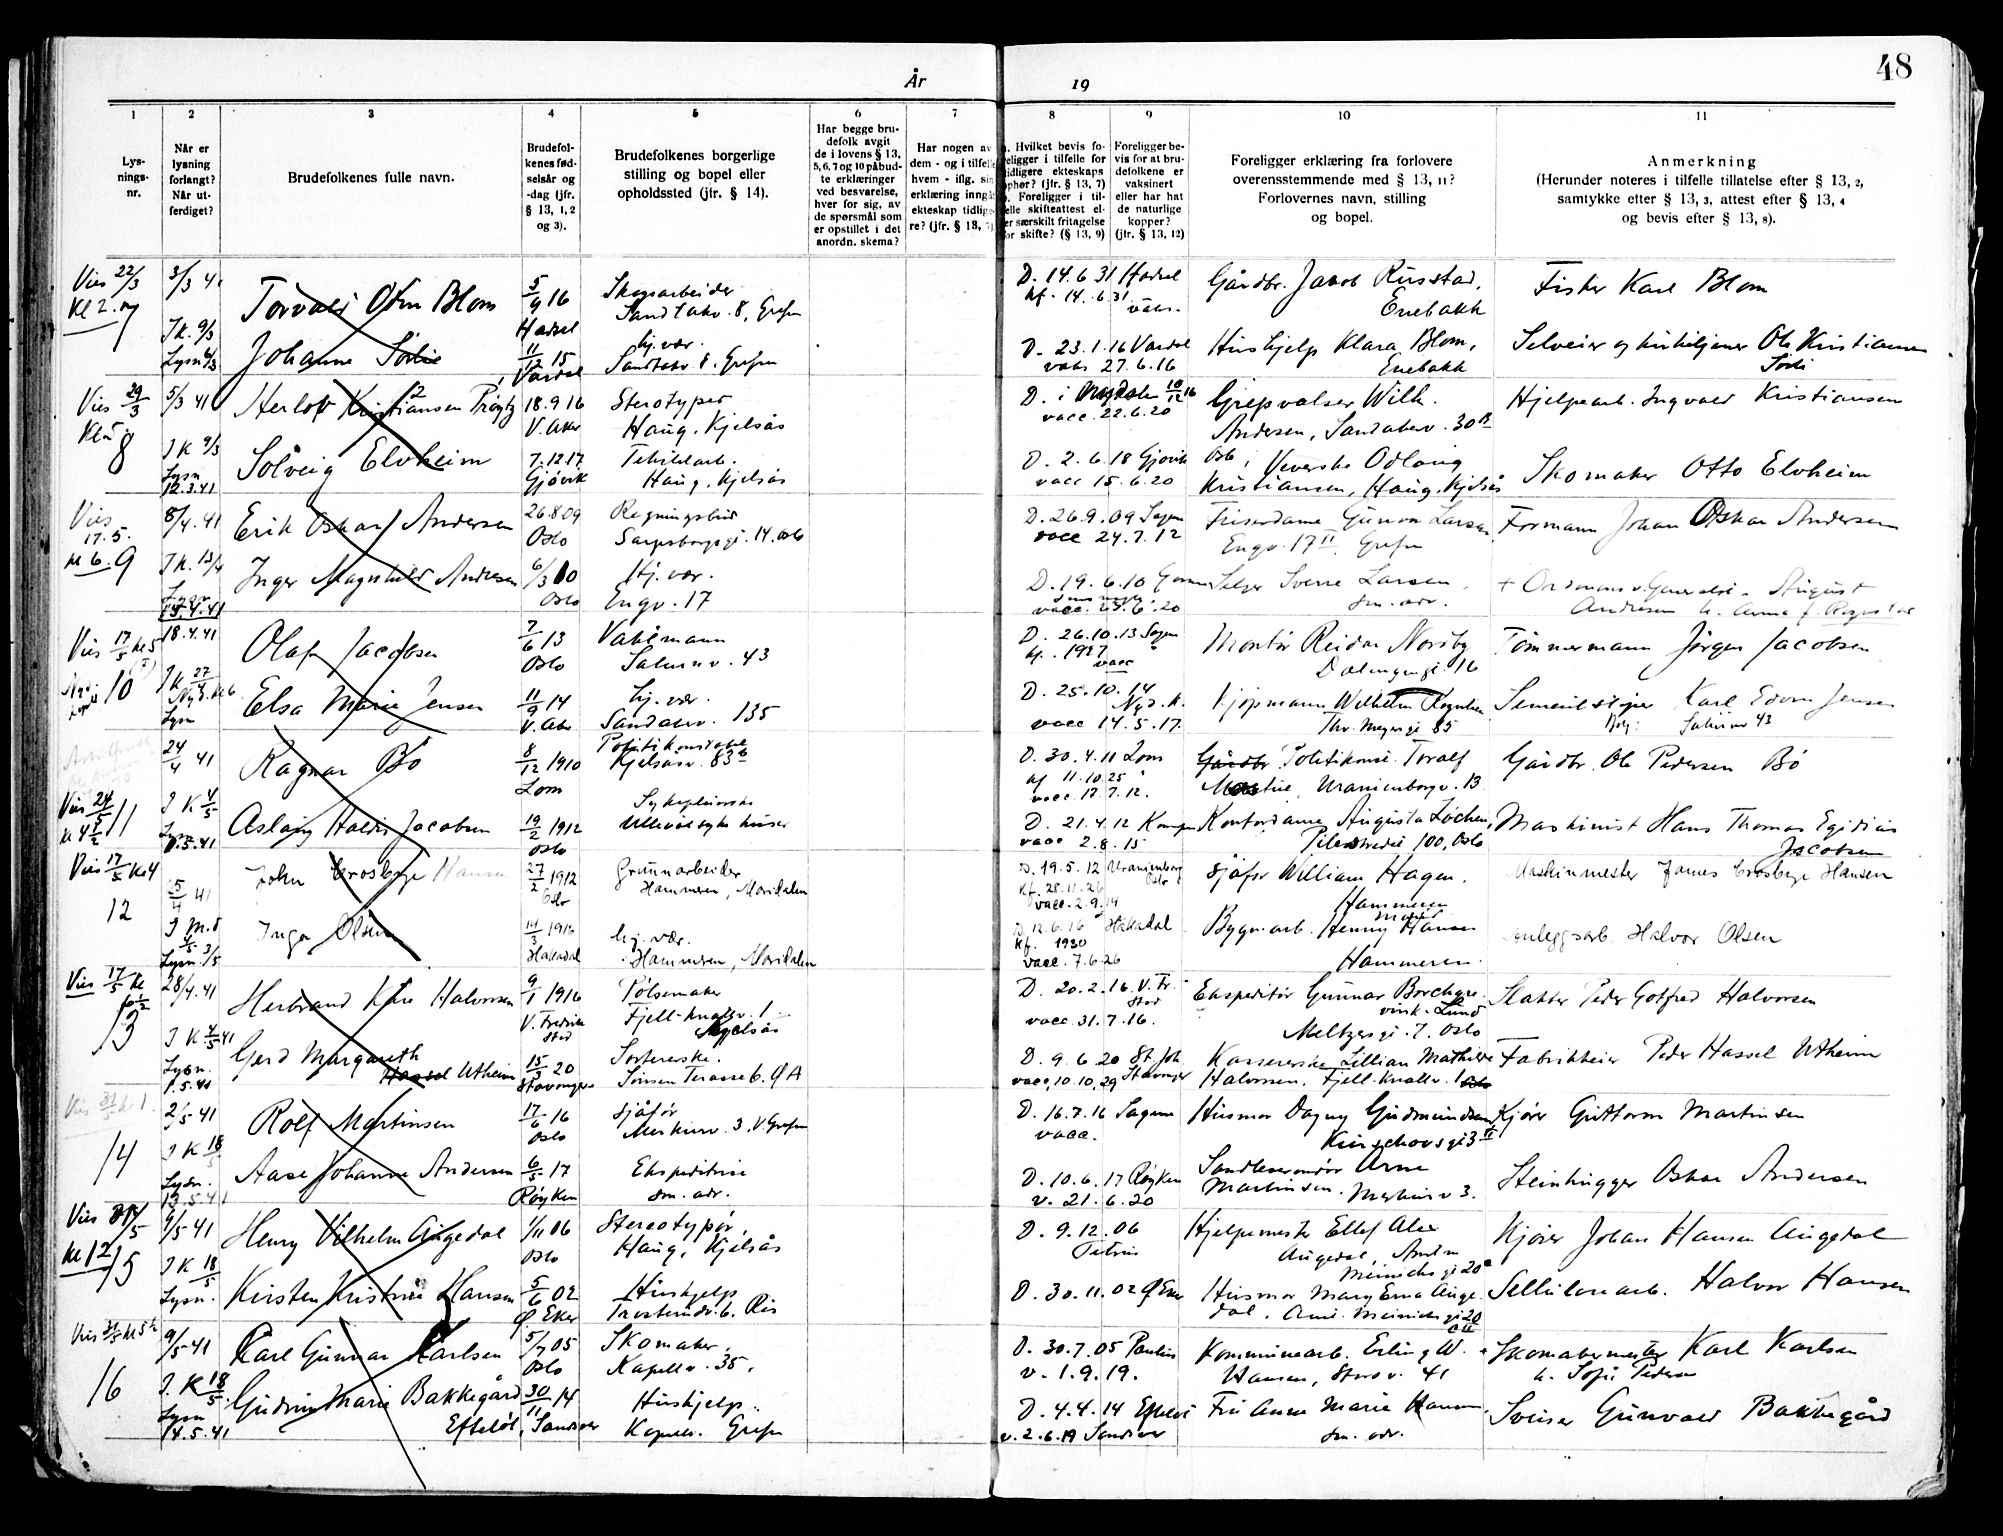 48
År
19
1
2
3
4
5
6
7
8
9
10
11
Lys-
nings-
nr.
Når er
lysning
forlangt?
Når ut-
ferdiget?
Brudefolkenes fulle navn.
Brudefol-
kenes fød-
selsår og
-dag (jfr.
§ 13, 1, 2
og 3).
Brudefolkenes borgerlige
stilling og bopel eller
opholdssted (jfr. § 14).
Har begge bru-
defolk avgit
de i lovens § 13,
5, 6, 7 og 10 påbud-
te erklæringer
ved besvarelse,
hver for sig, av
de spørsmål som
er opstillet i det
anordn. skema?
Har nogen av
dem - og i tilfelle
hvem - iflg. sin
erklæring inngå
ekteskap tidlige-
re? (jfr. § 13, 7)
Hvilket bevis fo-
religger i tilfelle for
tidligere ekteskaps
ophør? (jfr. § 13, 7)
Foreligger i til-
elle skifteattest el-
er særskilt fritagelse
for skifte? (§ 13, 9)
Foreligger be-
vis for at bru-
defolkene er
vaksinert
eller har hat
de naturlige
kopper?
(jfr. § 13, 12)
Foreligger erklæring fra forlovere
overensstemmende med § 13, 11?
Forlovernes navn, stilling
og bopel.
Anmerkning
(Herunder noteres i tilfelle tillatelse efter § 13, 2,
samtykke efter § 13, 3, attest efter § 13, 4
og bevis efter § 13, 8).
Vies 22/3
Kl 2.
7
3/3 41
I K. 9/3
Torvald Blom
5/9 16
Hadsel
Skogsarbeider
8, Grefsen
D. 14.6.31 Hadsel
kf. 14.6.31
Gårdbr. Jakob Russtad,
Enebakk
Fisker Karl Blom
Johanne Sørlie
11/12 15
Vardal
hj. vær.
8. Grefsen
D. 23.1.16 Vardal
vaks 27.6.16
Hushjelp Klara Blom,
Enebakk
Selveier og kirketjener Ole Kristiansen
Sørli
Vies 29/3
Kl 5
8
5/3 41
I K 9/3
Lysn
12.3.41
Herlof Kristiansen
18.9.16
V. Aker
Sterotypør
Haug, Kjelsås
D. i 10/12 16
vacc. 22.6.20
Wilh.
Andersen, Sandakerv. 30 B
Oslo
Hjelpearb. Ingvald Kristiansen
Solveig Elvheim
7.12.17
Gjøvik
Tekstilarb.
Haug, Kjelsås
D. 2.6.18 Gjøvik
vacc 15.6.20
Veverske Odlaug
Kristiansen, Haug, Kjelsås
Skomaker Otto Elvheim
Vies
17.5.
kl 6.
9
8/4. 41
I K. 13/4
Lysn
Erik Oskar Andersen
26.8.09
Oslo
Regningsbud
Sarpsborggt. 14. Oslo
D. 26.9.09 Sagene
vacc 24.7.12
Friserdame Gunvor Larsen
Engv. 17 II. Grefsen
Formann Johan Oskar Andersen
Inger Magnhild Andresen
Oslo
Hj. vær.
Engv. 17
D. 19.6.10
Selger Sverre Larsen
sm. adr.
August
Andresen
Vies 17/5 kl 5
10
18.4.41
I K 27/4
Lysn
Olaf Jacobsen
7/6 13
Oslo
Vaktmann
43
D. 26.10.13 Sagene
kf. 1927
vacc
Montør Reidar Norsby
Dælenenggt. 16
Tømmermann Jørgen Jacobsen
Elsa Marie Jensen
11/9 14
V. Aker
hj. vær.
Sandakerv. 135
D. 25.10.14
vacc 14.5.17.
Kjøpmann Wilhelm
Thv. Meyersgt 85
Karl Edvin Jensen
43
Vies 24/5
11
24/4 41
I K 4/5
Lysn
Ragnar Bö
8/12 1910
Lom
Politikonstabel
Kjelsåsv. 83 b
D. 30.4.11 Lom
kf 11.10.25
vacc 17.7.12.
Politikonst. Toralf
Uranienborgv. 13
Gårdbr. Ole Pedersen Bö
Aslaug Haldis Jacobsen
19/2 1912
Oslo
Sykepleierske
Ullevål sykehuset
D. 21.4.12
vacc 2.8.15
Kontordame Augusta Lochen,
Pilestredet 100, Oslo
Maskinist Hans Thomas Egidius
Jacobsen
Vies 17/5 kl 4
12
41
Lysn. 3/5
John Crosbye Hansen
27/2 1912
Oslo
Grunnarbeider
Hammeren, Maridalen
D. 19.5.12 Uranienborg
Oslo
Kf. 28.11.26
vacc. 2.9.14
Sjåfør William Hagen.
Hammeren
Maskinmester James Crosbye Hansen
Inga Olsen
14/3 1916
Hakadal
hj. vær.
Hammeren, Maridalen
D. 12.6.16 Hakadal
Kf. 1930
vacc. 7.6.26
Bygn.arb. Henry Hansen
Hammeren.
Anleggsarb. Halvor Olsen
Vies 17/5 kl
13
28/4. 41
I K 4/5 41
Lysn.
1.5.41
Herbrand Kåre Halvorsen
9/1 1916
V. Fredrik
stad
Pølsemaker
Fjell-knattv. 1
Kjelsås
D. 20.2.16. V. Fr.
stad
vacc. 31.7.16.
Ekspeditør Gunnar Borchgre-
vink-Lund
Meltzersgt. 7. Oslo
Slakter Peder Gotfred Halvorsen
Gerd Margareth
Hassel Utheim
15/3 20
Stavanger
Sortererske.
Jonsen Terasse 6. Ø A
D. 9.6.20 St. Joh.
Stavanger
vacc, 10.10.29
Kassererske Lillian Mathilde
Halvorsen. Fjell-knattv. 1
Fabrikkeier Peder Hassel Utheim
14
2/5 41
I K 18/5
Lysn.
13.5.41
Rolf Martinsen
17/6 16
Oslo
Sjåfør
Merkurv. 3, V. Grefsen
D. 16.7.16 Sagene
vacc.
Husmor Dagny Gudmundsen
Kjører Guttorm Martinsen
Aase Johanne Andersen
6/5 17
Røyken
Ekspeditrise
sm. adr.
D. 10.6.17 Røyken
v. 21.6.20
Arne
Martinsen. Merkurv 3.
Steinhugger Oskar Andersen
Vies
kl 12
15
9/5 41
I K 18/5
Lysn.
Henry Vilhelm Augedal
1/11 06
Oslo
Stereotypør.
Haug, Kjelsås
D. 9.12.06
Petrus
Hjelpemester Ellef Alex
Augedal,
Kjører Johan Hansen Augedal
Kirsten Kristine Hansen
5/6 02
Ø Eker
Hushjelp
6. Ris
D. 30.11.02 Ø Eker
Husmor Mary Erna Auge-
dal.
Cellulosearb. Halvor Hansen
16
9/5 41
I. K 18/5.
Lysn
14.5.41
Karl Gunnar Karlsen
5/7 05
Oslo
Skomaker.
Kapellv. 35.
D. 30.7.05 Paulus
v. 1.9.19.
Kommunearb. Erling W.
Hansen, 41
Skomakermester Karl Karlsen
Gudrun Marie Bakkegård
30/11 14
Efteløt, Sandsvær
Hushjelp.
Kapellv. Grefsen
D. 4.4.14 Efteløt
v. 2.6.19 Sandsvær
Fru Anna Marie Hansen
sm. adr.
Sveiser Gunvald Bakkegård